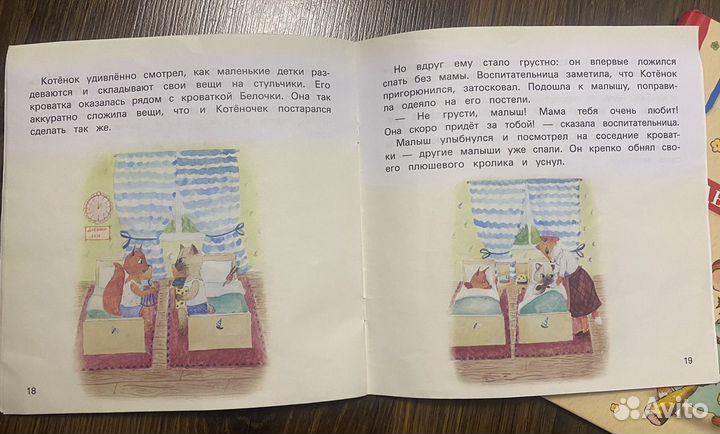 Котёнок удивлённо смотрел, как маленькие детки раз-
деваются и складывают свои вещи на стульчики. Его
кроватка оказалась рядом с кроваткой Белочки. Она так
аккуратно сложила вещи, что и Котёночек постарался
сделать так же.
18
Но вдруг ему стало грустно: он впервые ложился
спать без мамы. Воспитательница заметила, что Котёнок
пригорюнился, затосковал. Подошла к малышу, поправи-
ла одеяло на его постели.
— Не грусти, малыш! Мама тебя очень любит!
Она скоро придёт за тобой! — сказала воспитательница.
Малыш улыбнулся и посмотрел на соседние кроват-
ки — другие малыши уже спали. Он крепко обнял сво-
его плюшевого кролика и уснул.
19
Avito